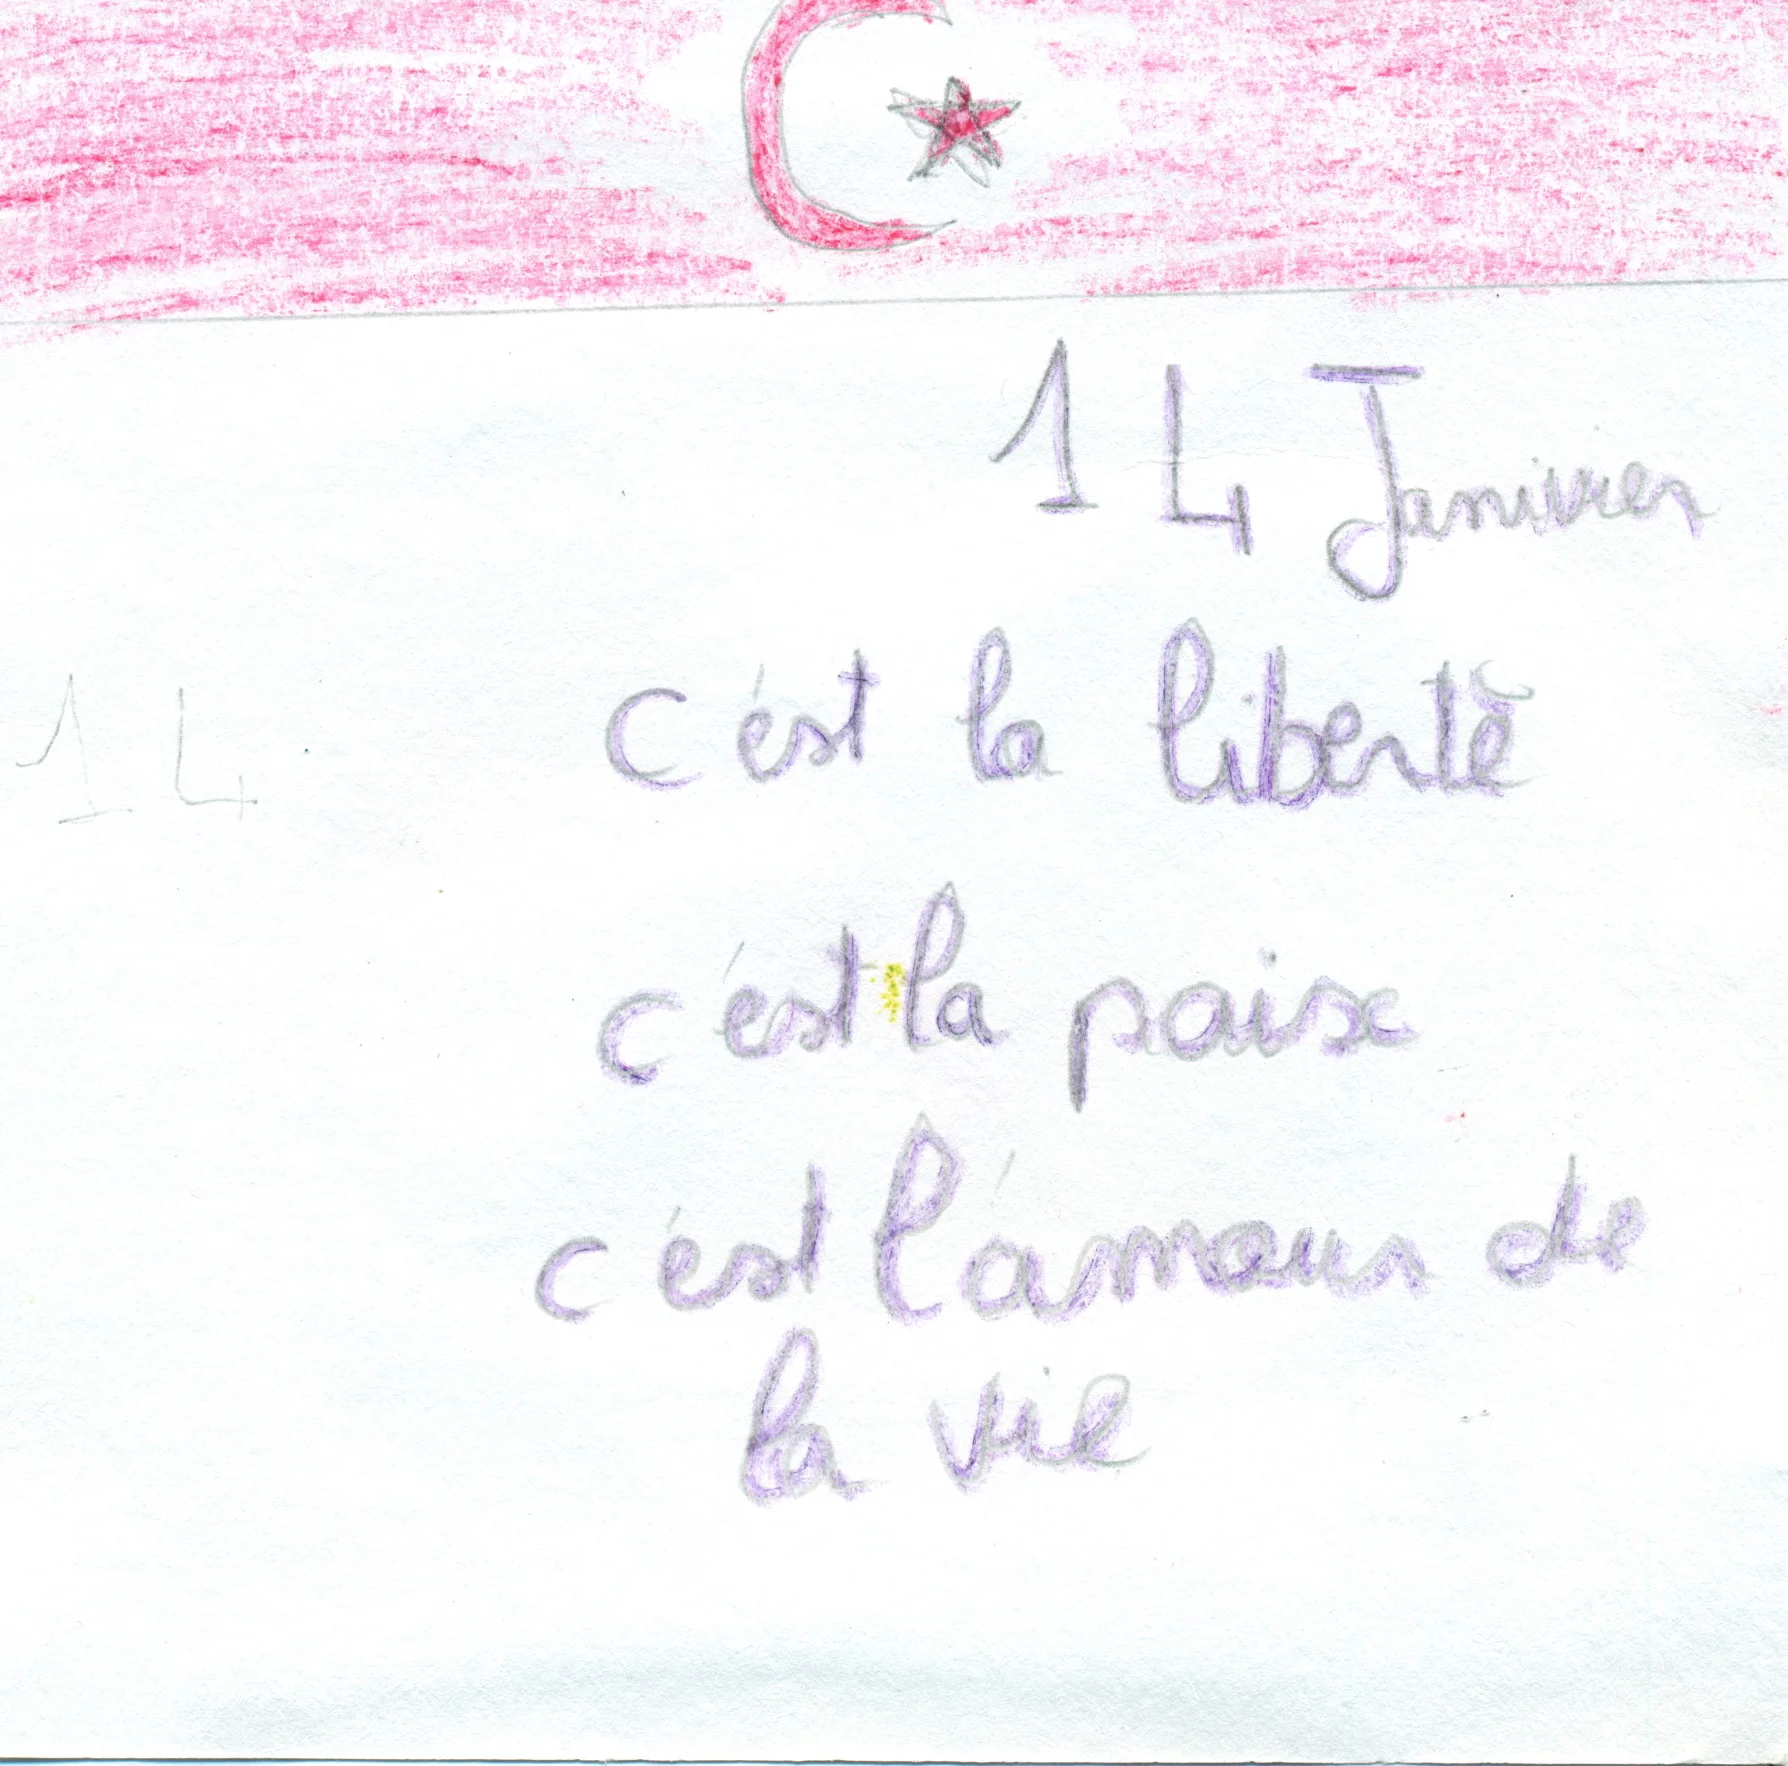 14 Janivier
14
c'est la liberté
c'est la paix
c'est l'amour de
la vie